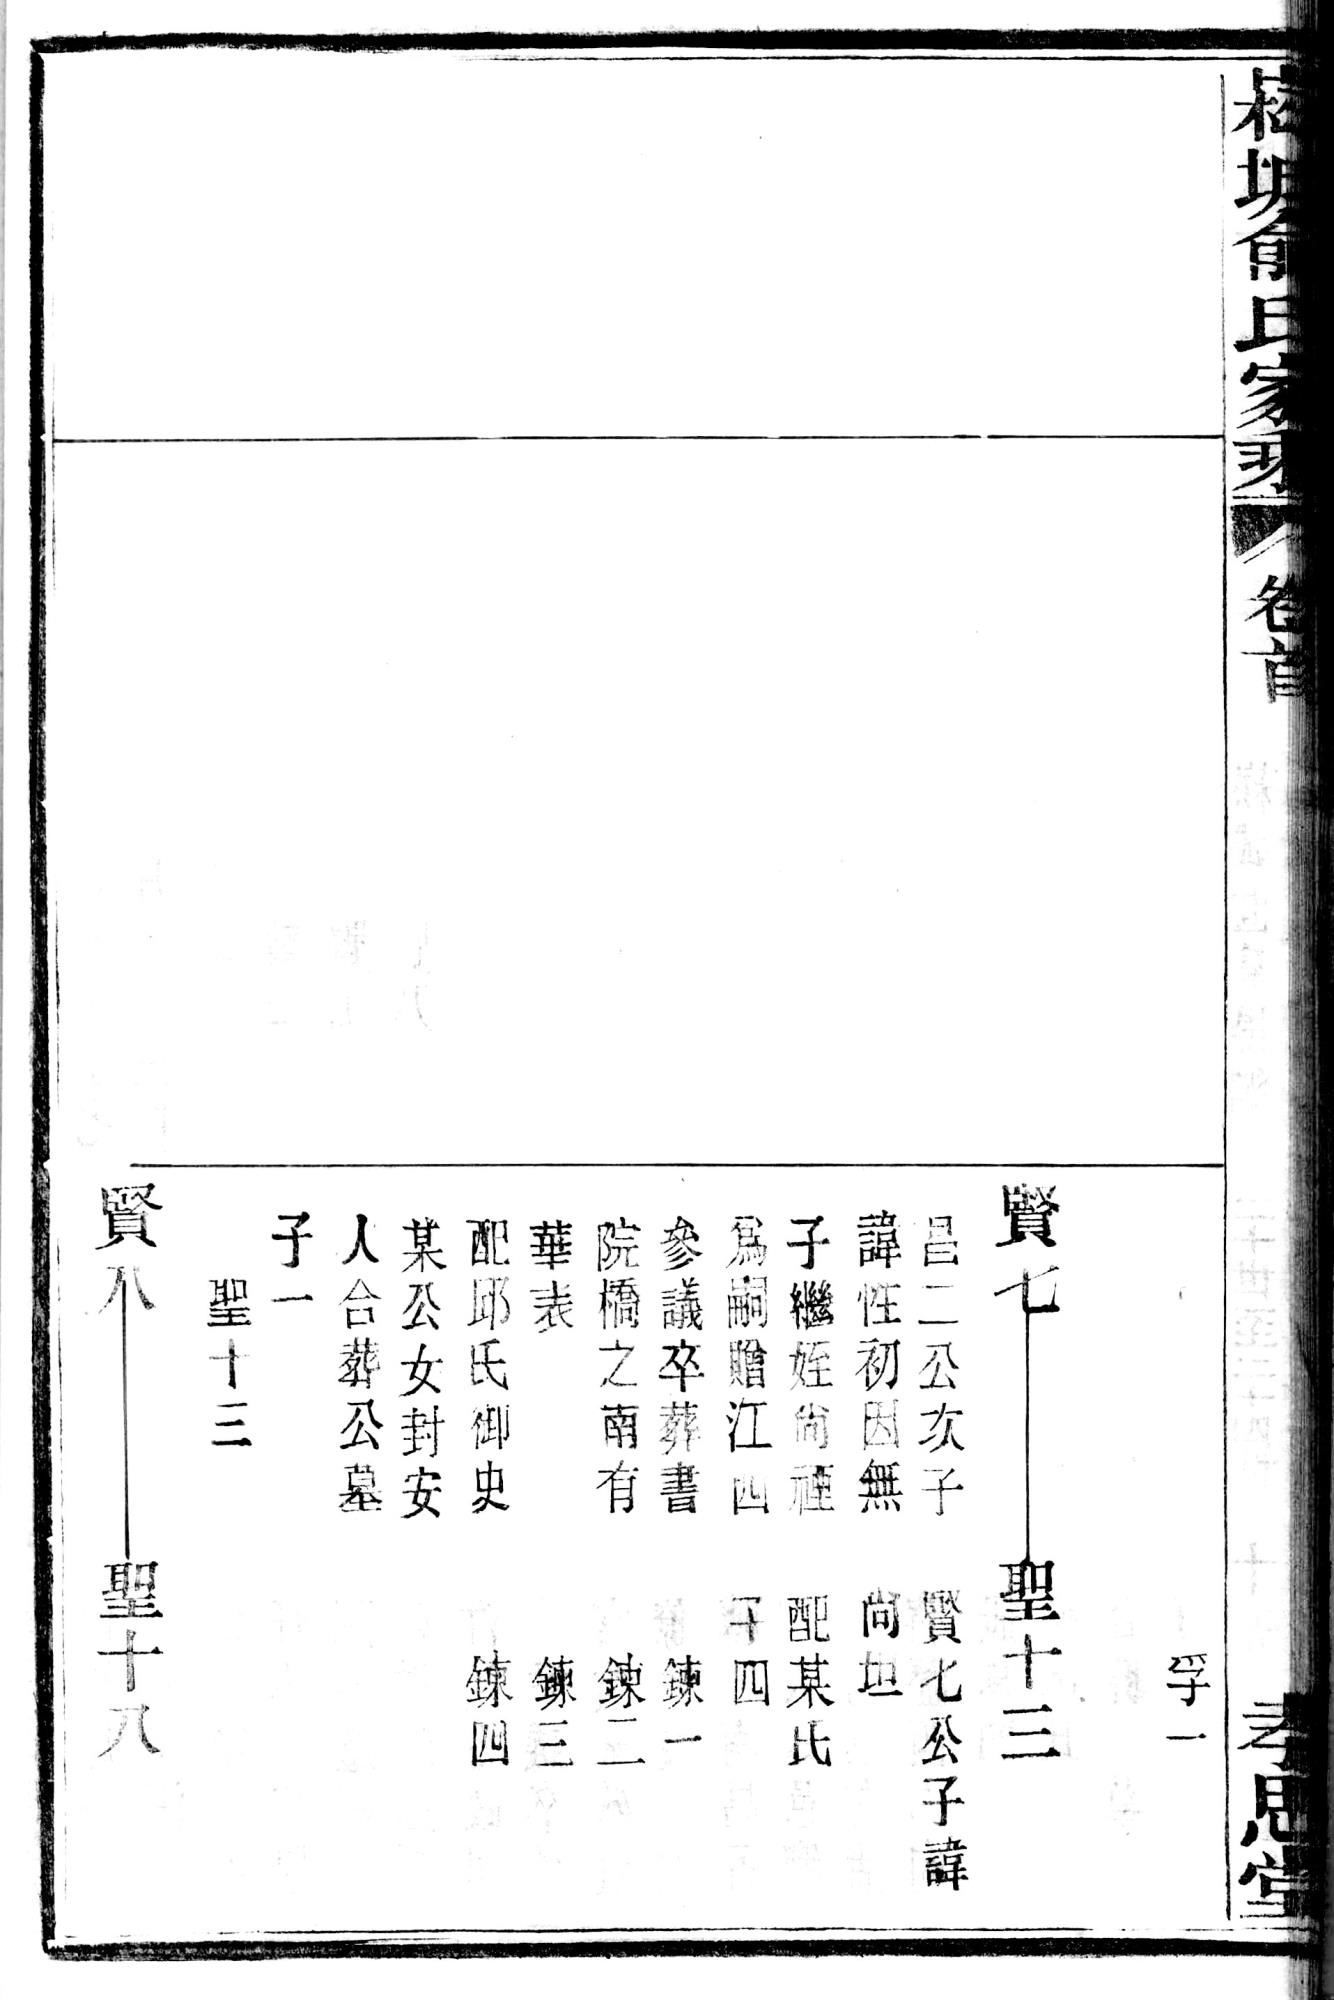 俞氏家乘 卷首
孝思堂
孚一
賢七
昌二公次子
諱性初因無
子繼姪尚禋
爲嗣贈江西
參議卒葬書
院橋之南有
華表
配邱氏御史
某公女封安
人合葬公墓
子一
聖十三
聖十三
賢七公子諱
尚坦
配某氏
子四
鍊一
鍊二
鍊三
鍊四
賢八
聖十八